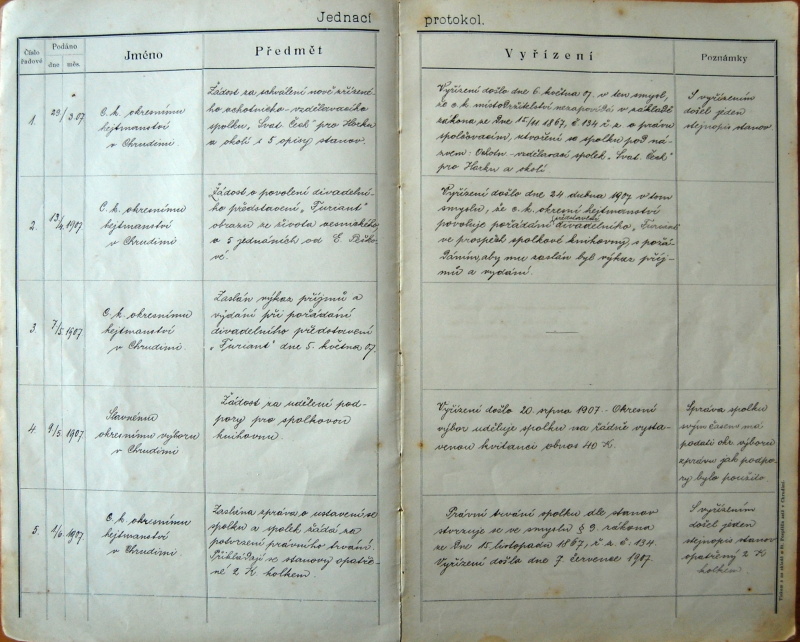 Jednací protokol.
Číslo řadové
Podáno
dne
měs.
Jméno
Předmět
Vyřízení
Poznámky
1.
29/3.07
C. k. okresnímu
hejtmanství
v Chrudimi
Žádost za schválení nově zřízené-
ho ochotnicko-vzdělávacího
spolku „Svat. Čech" pro Horku
a okolí s 5 opisy stanov.
Vyřízení došlo dne 6. května 07. v ten smysl,
že c. k. místodržitelství nezapovídá v základě
zákona ze dne 15/11 1867, č 134 ř. z. o právu
spolčovacím, utvoření se spolku pod ná-
zvem: Ochotn. - vzdělávací spolek „Svat. Čech"
pro Horku a okolí
S vyřízením
došel jeden
stejnopis stanov
2.
13/4.1907
C. k. okresnímu
hejtmanství
v Chrudimi
Žádost o povolení divadelní-
ho představení „Furiant"
obrazu ze života vesnického
o 5 jednáních od E. Peško-
vé.
Vyřízení došlo dne 24. dubna 1907 v tom
smyslu, že c. k. okresní hejtmanství
povoluje pořádání divadelního představení „Furiant"
ve prospěch spolkové knihovny, s pořá-
dáním, aby mu zaslán byl výkaz příj-
mů a vydání.
3.
7/5.1907
C. k. okresnímu
hejtmanství
v Chrudimi
Zaslán výkaz příjmů a
vydání při pořádání
divadelního představení
„Furiant" dne 5. května 07.
4.
9/5.1907.
Slavnému
okresnímu výboru
v Chrudimi
Žádost za udělení pod-
pory pro spolkovou
knihovnu.
Vyřízení došlo 20. srpna 1907 - Okresní
výbor uděluje spolku na řádně vysta-
venou kvitanci obnos 40 K.
Správa spolku
svým časem má
podati okr. výboru
zprávu jak podpo-
ry bylo použito.
5.
1/6.1907
C. k. okresnímu
hejtmanství
v Chrudimi
Zaslána zpráva o ustavení se
spolku a spolek žádá za
potvrzení právního trvání.
Přikládají se stanovy opatře-
né 2 K kolkem.
Právní trvání spolku dle stanov
stvrzuje se ve smyslu § 9. zákona
ze dne 15. listopadu 1867, ř. z. č. 134.
Vyřízení došlo dne 7. července 1907.
S vyřízením
došel jeden
stejnopis stanov
opatřený 2 K
kolkem